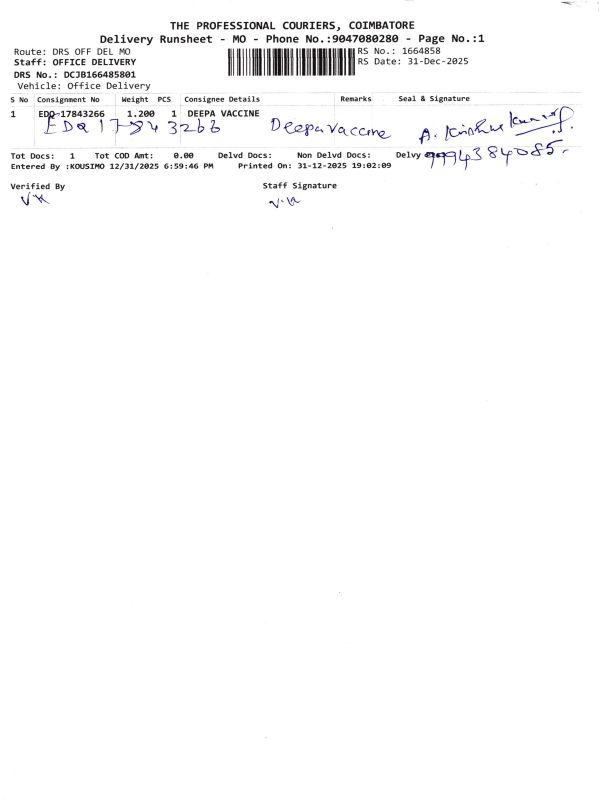 THE PROFESSIONAL COURIERS, COIMBATORE
Delivery Runsheet - MO - Phone No.:9047080280 - Page No.:1
Route: DRS OFF DEL MO RS No.: 1664858
Staff: OFFICE DELIVERY RS Date: 31-Dec-2025
DRS No.: DCJB166485801
Vehicle: Office Delivery
S No Consignment No Weight PCS Consignee Details Remarks Seal & Signature
1 EDQ-17843266 1.200 1 DEEPA VACCINE
EDQ 17843266 Deepavaccine A. Krishna Kumar
Tot Docs: 1 Tot COD Amt: 0.00 Delvd Docs: Non Delvd Docs: Delvy 9994384085.
Entered By :KOUSIMO 12/31/2025 6:59:46 PM Printed On: 31-12-2025 19:02:09
Verified By Staff Signature
V.K V.K